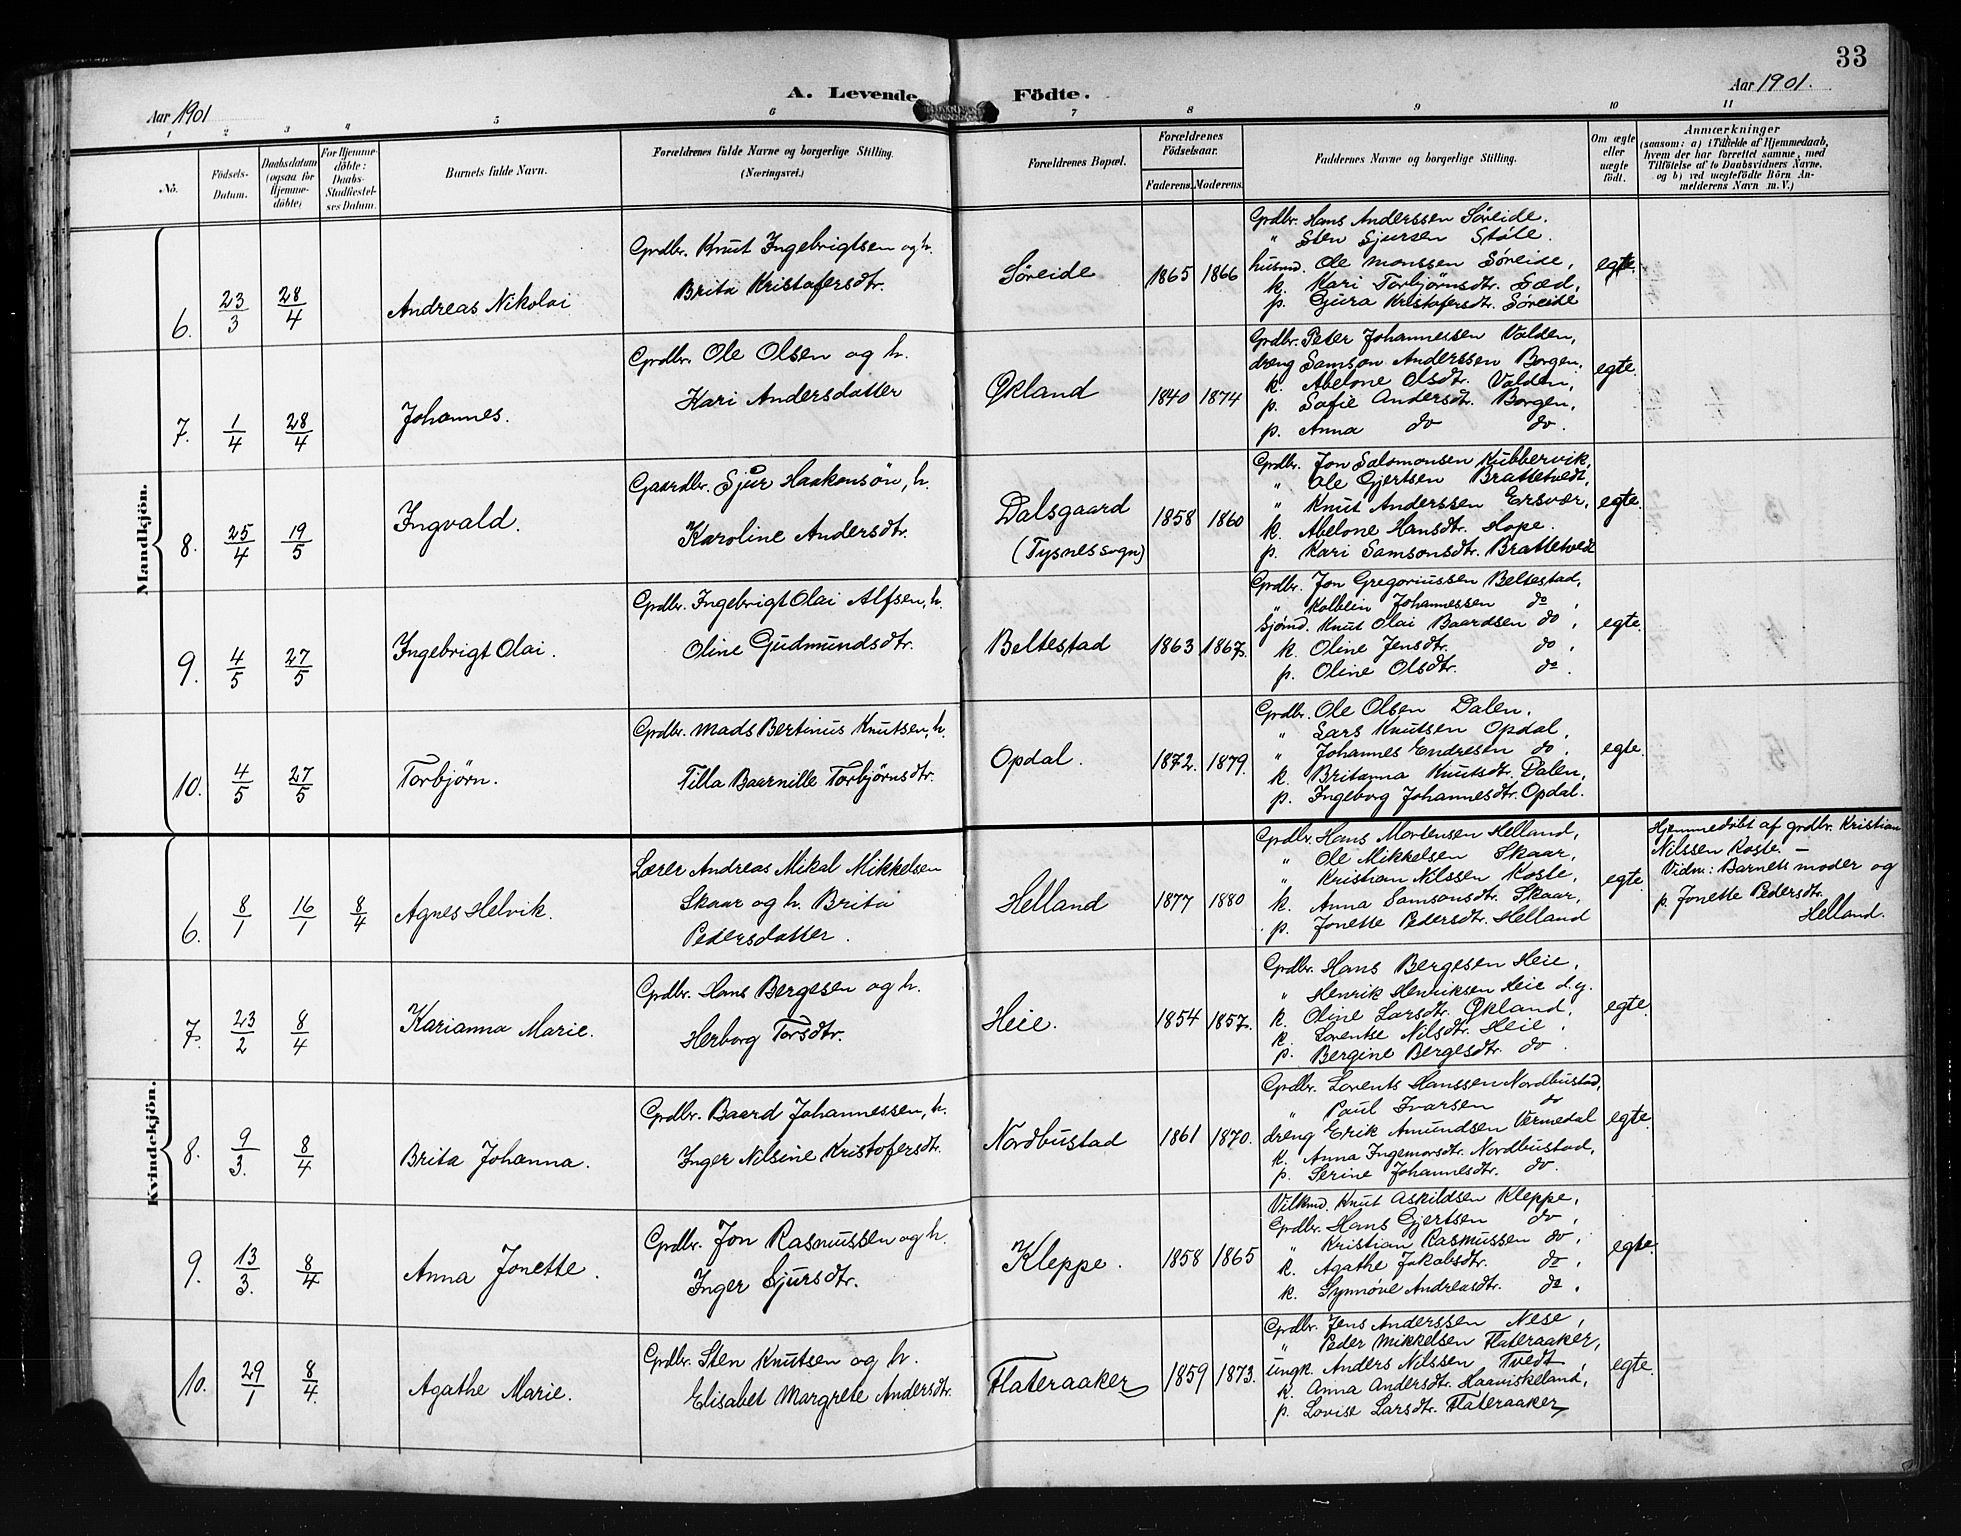 33
A. Levende Födte.
Aar 1901
Aar 1901.
1 2 3 4 5 6 7 8 9 10 11
No.
Födsels-Datum.
Daabsdatum (ogsaa for Hjemmedöbte)
For Hjemmedöbte: Daabs-Stadfæstelses Datum.
Barnets fulde Navn.
Forældrenes fulde Navne og borgerlige Stilling.
(Næringsvei.)
Forældrenes Bopæl.
Forældrenes Födselsaar.
Faderens. Moderens.
Faddernes Navne og borgerlige Stilling.
Om ægte eller uægte födt.
Anmærkninger
(saasom: a) i Tilfælde af Hjemmedaab,
hvem der har forrettet samme, med
Tilföielse af to Daabsvidners Navne,
og b) ved uægtefödte Börn An-
melderens Navn m. V.)
Mandkjön.
6. 23/3 28/4 Andreas Nikolai
Grdbr. Knut Ingebrigtsen og h.
Brita Kristofersdtr.
Søreide 1865 1866
Grdbr. Hans Anderssen Søreide.
" Sten Sjursen Støle.
husmd. Ole Monssen Søreide,
k. Kari Torbjørnsdtr. Sæd,
p. Gjura Kristofersdtr. Søreide
egte.
7. 1/4 28/4 Johannes.
Grdbr. Ole Olsen og h.
Kari Andersdatter
Økland 1840 1874
Grdbr. Peter Johannessen Valden,
dreng Samson Anderssen Borgen,
k. Abelone Olsdtr. Valden,
p. Sofie Andersdtr. Borgen,
p. Anna do do.
egte.
8. 25/4 19/5 Ingvald.
Gaardbr. Sjur Haakonsøn, h.
Karoline Andersdtr.
Dalsgaard
(Tysnes sogn)
1858 1860
Grdbr. Jon Salomonsen Kubbervik,
" Ole Gjertsen Brattetvedt,
" Knut Anderssen Ersvær,
k. Abelone Hansdtr. Hope.
p. Kari Samsonsdtr. Brattetvedt
egte.
9. 4/5 27/5 Ingebrigt Olai.
Grdbr. Ingebrigt Olai Alfsen, h.
Oline Gudmundsdtr.
Beltestad 1863 1867.
Grdbr. Jon Gregoriussen Beltestad,
" Kolbein Johannessen do,
Sjømd. Knut Olai Baardsen do,
k. Oline Jensdtr. do,
p. Oline Olsdtr. do.
egte.
10. 4/5 27/5 Torbjørn.
Grdbr. Mads Bertinus Knutsen, h.
Tilla Baarnille Torbjørnsdtr.
Opdal. 1872. 1879.
Grdbr. Ole Olsen Dalen,
" Lars Knutsen Opdal,
" Johannes Endresen do,
k. Britanna Knutsdtr. Dalen,
p. Ingeborg Johannesdtr. Opdal.
egte.
Kvindekjön.
6. 8/1 16/1 8/4 Agnes Helvik.
Lærer Andreas Mikal Mikkelsen
Skaar og h. Brita
Pedersdatter.
Helland 1877 1880
Grdbr. Hans Mortensen Helland,
" Ole Mikkelsen Skaar,
" Kristian Nilssen Koste,
k. Anna Samsonsdtr. Skaar,
p. Jonette Pedersdtr. Helland
egte.
Hjemmedøbt af grdbr. Kristian
Nilssen Koste. –
Vidn: Barnets moder og
p. Jonette Pedersdtr.
Helland.
7. 23/2 8/4 Karianna Marie.
Grdbr. Hans Bergesen og h.
Herborg Torsdtr.
Heie. 1854 1857.
Grdbr. Hans Bergesen Heie,
" Henrik Henriksen Heie d.y.
k. Oline Larsdtr. Økland,
k. Lorentse Nilsdtr. Heie,
p. Bergine Bergesdtr. do.
egte.
8. 9/3. 8/4 Brita Johanna.
Grdbr. Baard Johannessen, h.
Inger Nilsine Kristofersdtr.
Nordbustad 1861 1870.
Grdbr. Lorents Hanssen Nordbustad,
" Paul Ivarsen do
dreng Erik Amundsen Vermedal
k. Anna Ingemorsdtr. Nordbustad,
p. Serine Johannesdtr. do.
egte.
9. 13/3. 8/4 Anna Jonette.
Grdbr. Jon Rasmussen og h.
Inger Sjursdtr.
Kleppe. 1858 1865
Vilkmd. Knut Askildsen Kleppe,
Grdbr. Hans Gjertsen do,
" Kristian Rasmussen do,
k. Agathe Jakobsdtr. do,
k. Synnøve Andreasdtr. do.
egte.
10. 29/1 8/4. Agathe Marie.
Grdbr. Sten Knutsen og h.
Elisabet Margrete Andersdtr.
Flateraaker 1859 1873.
Grdbr. Jens Anderssen Nese,
" Peder Mikkelsen Flateraaker,
ungk. Anders Nilssen Tvedt,
k. Anna Andersdtr. Haaviskeland,
p. Lovise Larsdtr. Flateraaker
egte.